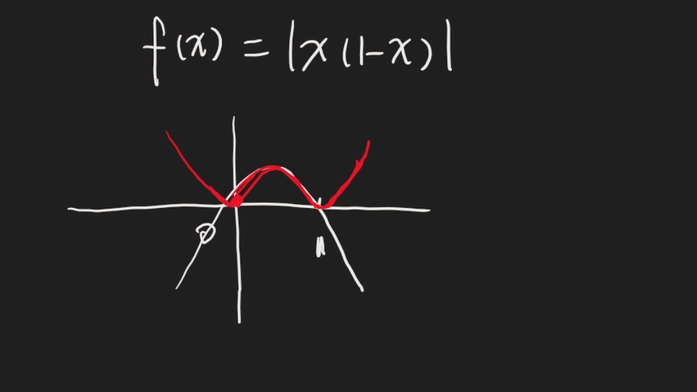 f(x) = |x(1-x)|
0 1